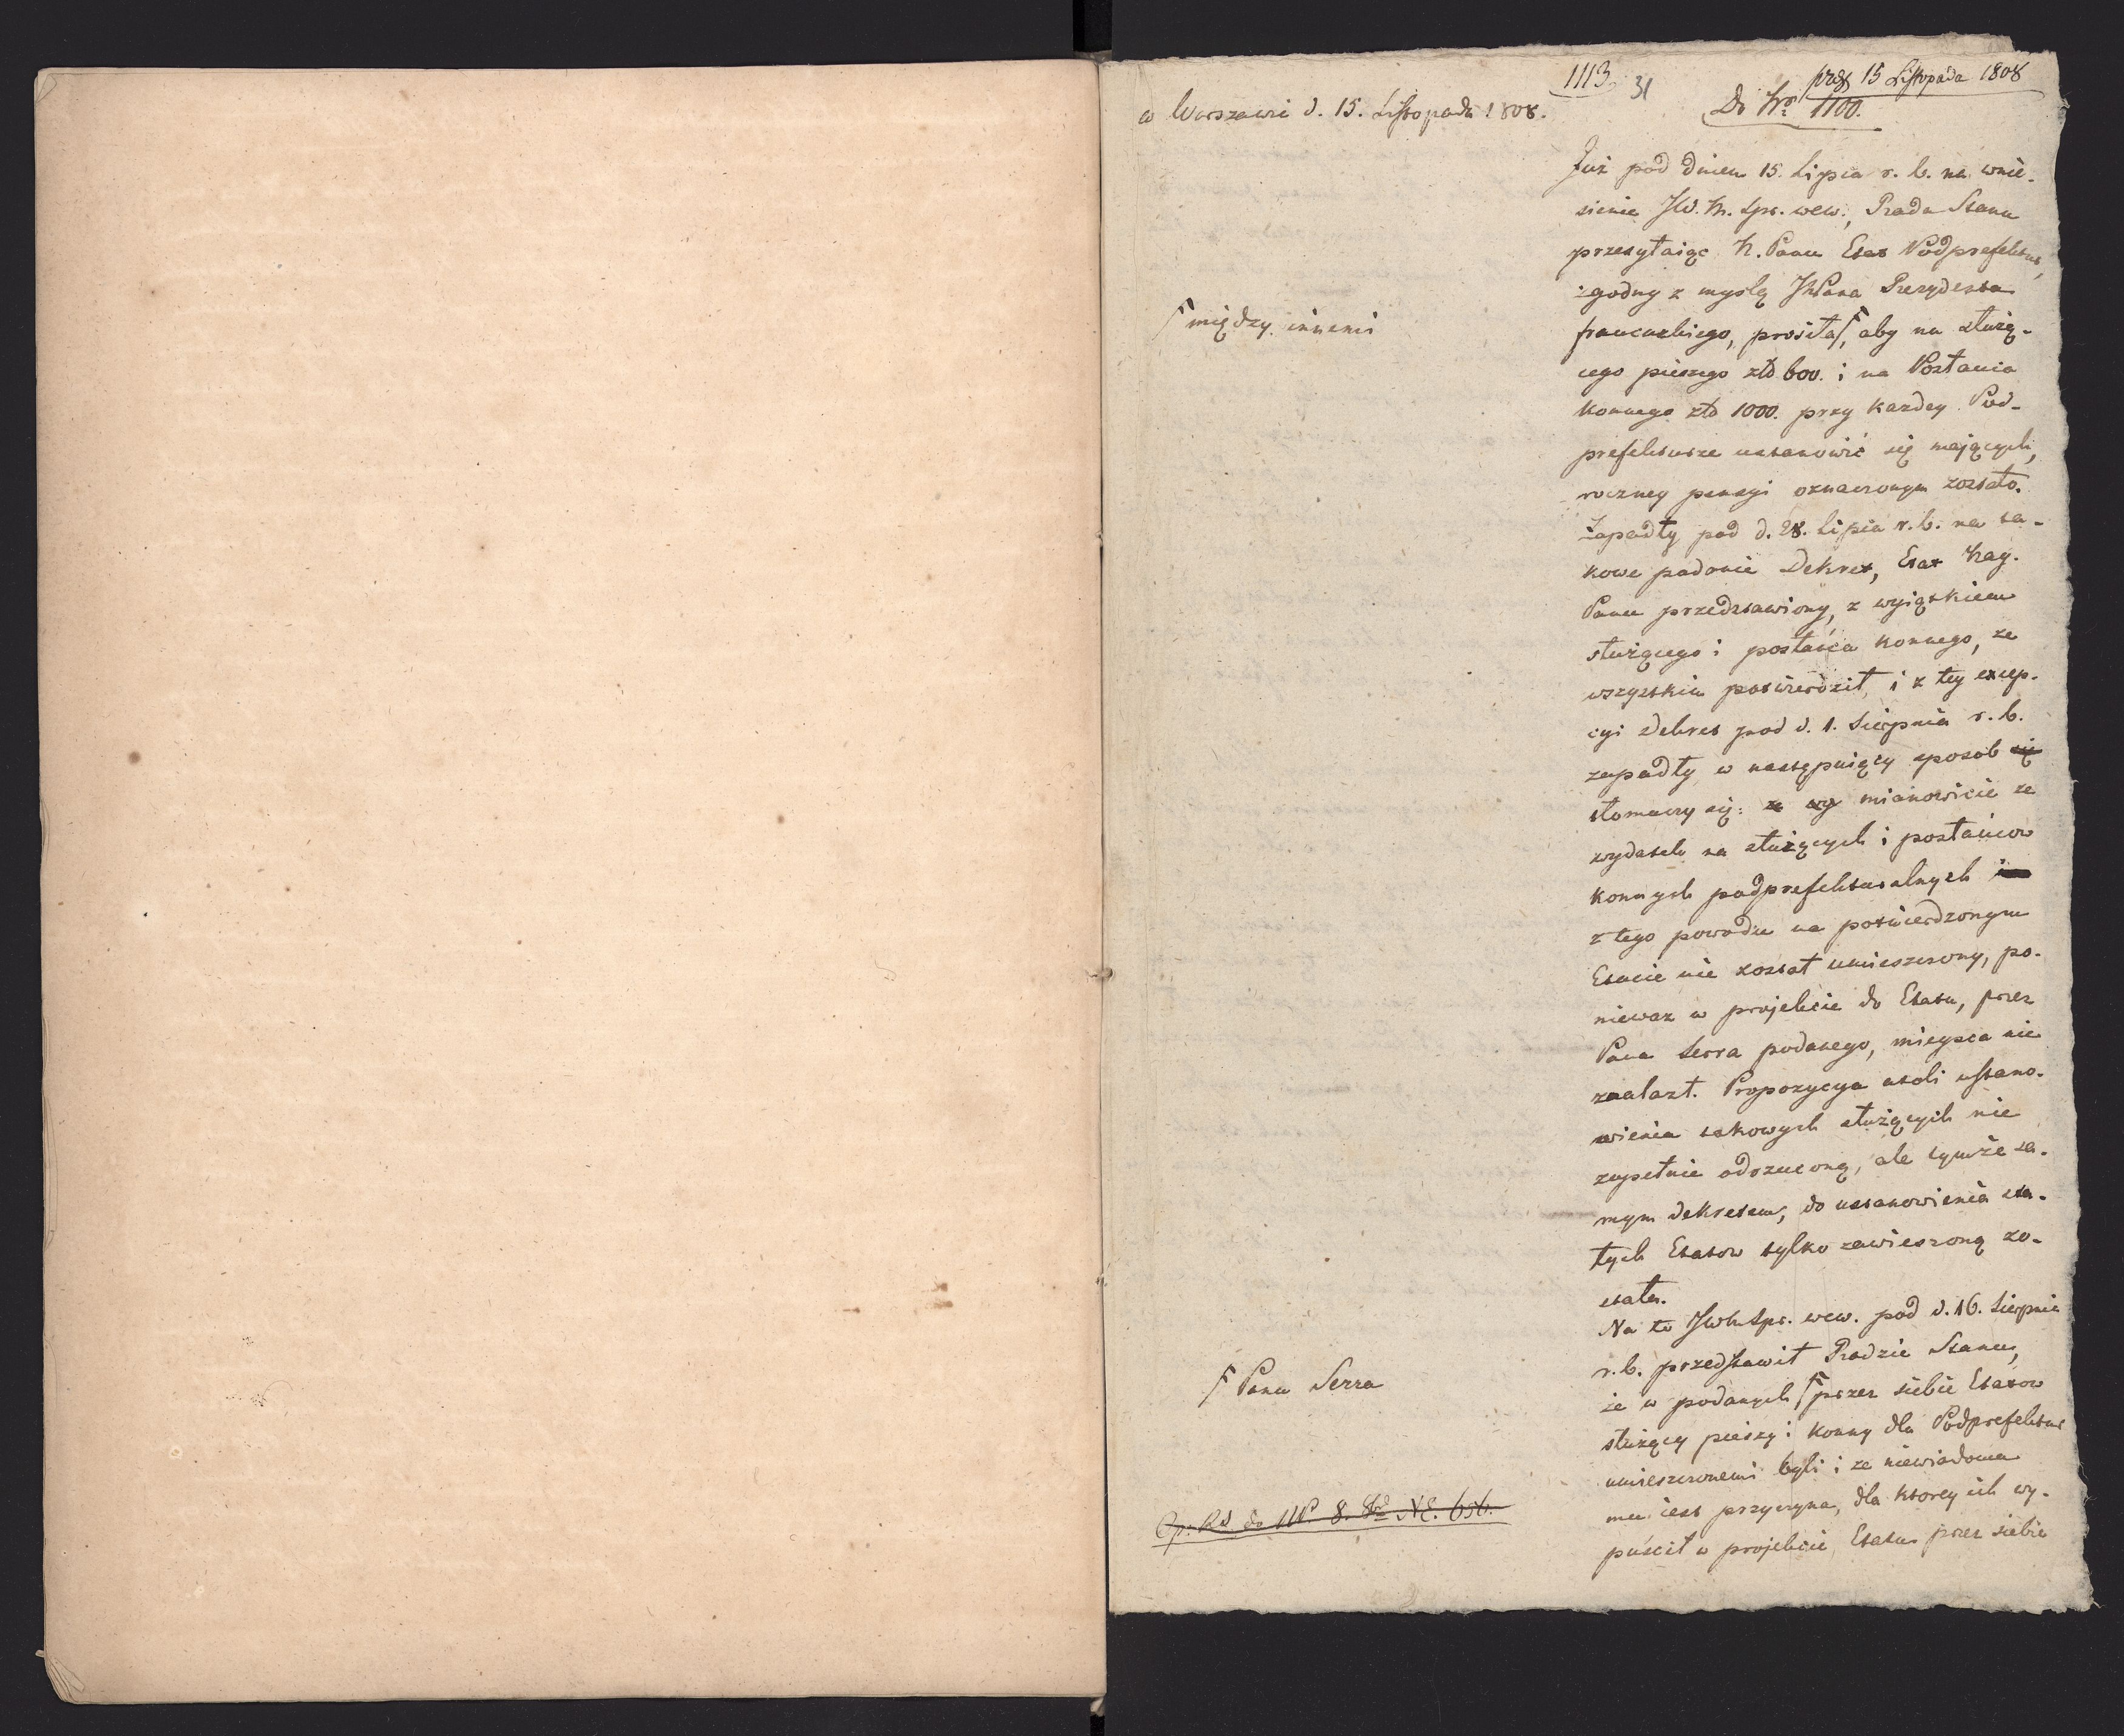 1113. 31
prod 15 Listopada 1808
w Warszawie d. 15. Listopada 1808.
Do Nro 1100.
Już pod dniem 15. Lipca r. b. na wnie-
sienie JW. M. Spr. wew., Rada Stanu
przesyłaiąc N. Panu Etat Podprefektur,
zgodny z myślą JWPana Rezydenta
francuzkiego, prosiła, aby na służą-
⌈ między innemi
cego pieszego złt. 600. i na Posłańca
konnego złt 1000. przy każdey Pod-
prefekturze ustanowić się mających,
roczney pensyi oznaczonym zostało.
Zapadły pod d. 28. Lipca r. b. na ta-
kowe podanie Dekret, Etat Nay.
Panu przedstawiony, z wyiątkiem
służącego i posłańca konnego, ze
wszystkim potwierdził, i z tey excep-
cyi Dekret pod d. 1. Sierpnia r. b.
zapadły w następuiący sposob się
tłomaczy się: ze wy mianowicie że
wydatek na służących i posłańcow
konnych podprefekturalnych
z tego powodu na potwierdzonym
Etacie nie został umieszczony, po-
nieważ w projekcie do Etatu, przez
Pana Serra podanego, mieysca nie
znalazł. Propozycya atoli ustano-
wienia takowych służących nie
zupełnie odrzuconą, ale tymże sa-
mym dekretem, do ustanowienia sta-
łych Etatow tylko zawieszoną zo-
stała.
Na to JWM. Spr. wew. pod d. 16. Sierpnia
r. b. przedstawił Radzie Stanu,
że w podanych ⌈ przez siebie Etatow
⌈ Panu Serra
służący pieszy i konny dla Podprefektur
umieszczonemi byli i że niewiadoma
mu iest przyczyna, dla ktorey ich wy-
puścił w projekcie Etatu przez siebie
Op. Rd. do MP. 8. 8bra NE. 656.